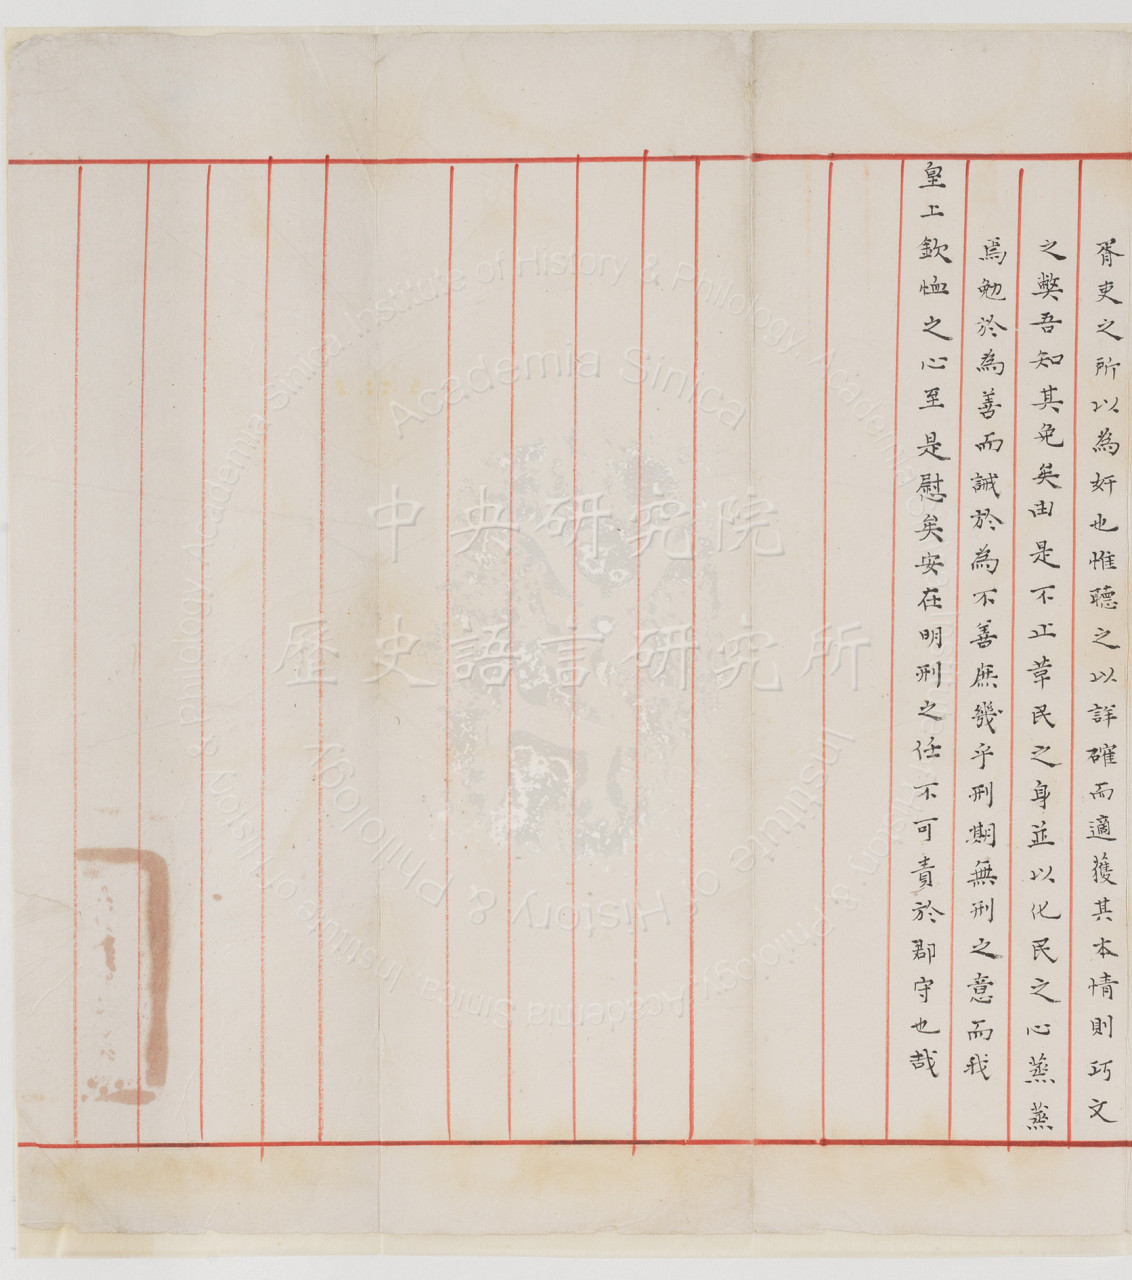 胥吏之所以為奸也惟聽之以詳確而適獲其本情則巧文
之弊吾知其免矣由是不止革民之身並以化民之心蒸蒸
焉勉於為善而誡於為不善庶幾乎刑期無刑之意而我
皇上欽恤之心至是慰矣安在明刑之任不可責於郡守也哉
中央研究院
歷史語言研究所
Academia Sinica
Institute of History & Philology